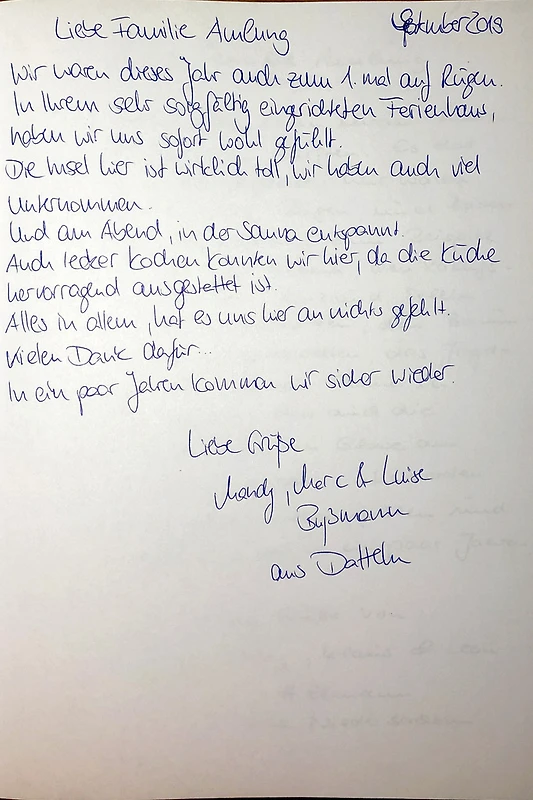 Liebe Familie Amlung September 2019
Wir waren dieses Jahr auch zum 1. mal auf Rügen.
In Ihrem sehr sorgfältig eingerichteten Ferienhaus,
haben wir uns sofort wohl gefühlt.
Die Insel hier ist wirklich toll, wir haben auch viel
unternommen.
Und am Abend, in der Sauna entspannt.
Auch lecker kochen konnten wir hier, da die Küche
hervorragend ausgestattet ist.
Alles in allem, hat es uns hier an nichts gefehlt.
Vielen Dank dafür...
In ein paar Jahren kommen wir sicher wieder.
Liebe Grüße
Mandy, Marc & Luise
Bußmann
aus Datteln